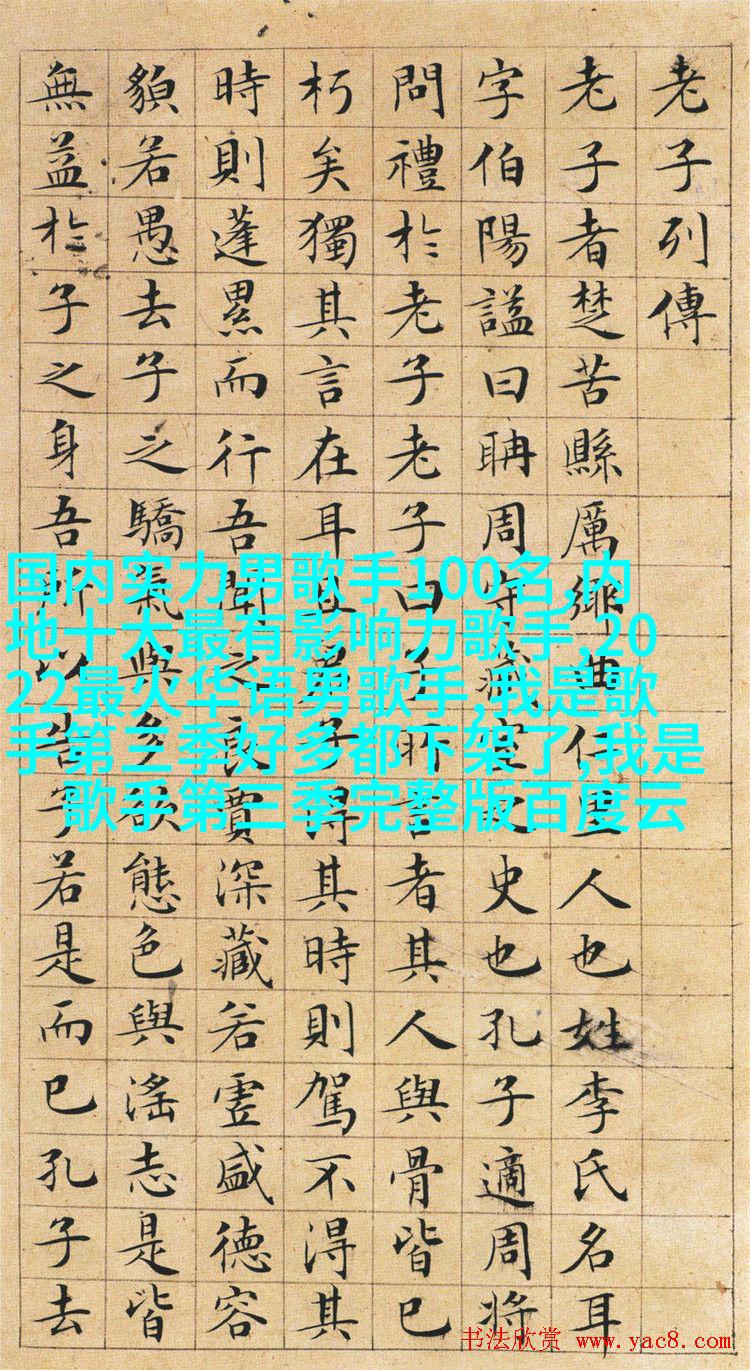 老子列傳
老子者楚苦縣厲鄉曲仁里人也姓李氏名耳
字伯陽謚曰聃周守藏室之史也孔子適周將
問禮於老子老子曰子所言者其人與骨皆已
朽矣獨其言在耳且君子得其時則駕不得其
時則蓬累而行吾聞之良賈深藏若虛盛德容
貌若愚去子之驕氣與多欲態色與淫志是皆
無益於子之身吾所以告子若是而已孔子去
国内实力男歌手100名,内
地十大最有影响力歌手,20
22最火华语男歌手,我是歌
手第三季好多都下架了,我是
歌手第三季完整版百度云
书法欣赏 www.yac8.com